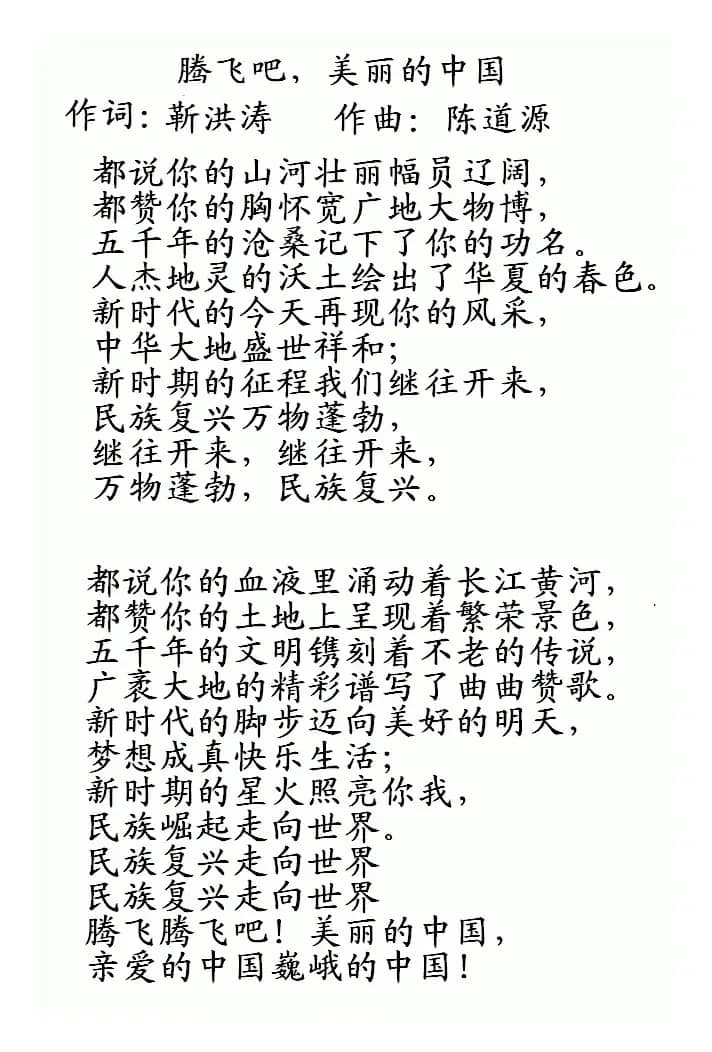 腾飞吧，美丽的中国
作词：靳洪涛 作曲：陈道源
都说你的山河壮丽幅员辽阔，
都赞你的胸怀宽广地大物博，
五千年的沧桑记下了你的功名。
人杰地灵的沃土绘出了华夏的春色。
新时代的今天再现你的风采，
中华大地盛世祥和；
新时期的征程我们继往开来，
民族复兴万物蓬勃，
继往开来，继往开来，
万物蓬勃，民族复兴。
都说你的血液里涌动着长江黄河，
都赞你的土地上呈现着繁荣景色，
五千年的文明镌刻着不老的传说，
广袤大地的精彩谱写了曲曲赞歌。
新时代的脚步迈向美好的明天，
梦想成真快乐生活；
新时期的星火照亮你我，
民族崛起走向世界。
民族复兴走向世界
民族复兴走向世界
腾飞腾飞吧！美丽的中国，
亲爱的中国巍峨的中国！